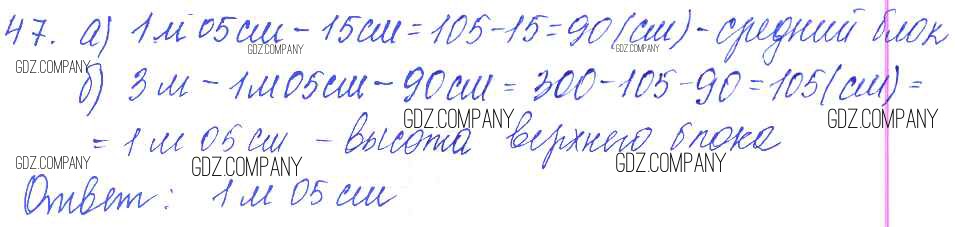 47. а) 1 м 05 см – 15 см = 105 – 15 = 90 (см) – средний блок
GDZ.COMPANY GDZ.COMPANY GDZ.COMPANY GDZ.COMPANY
б) 3 м – 1 м 05 см – 90 см = 300 – 105 – 90 = 105 (см) =
GDZ.COMPANY GDZ.COMPANY
= 1 м 05 см – высота верхнего блока
GDZ.COMPANY GDZ.COMPANY GDZ.COMPANY GDZ.COMPANY
Ответ: 1 м 05 см